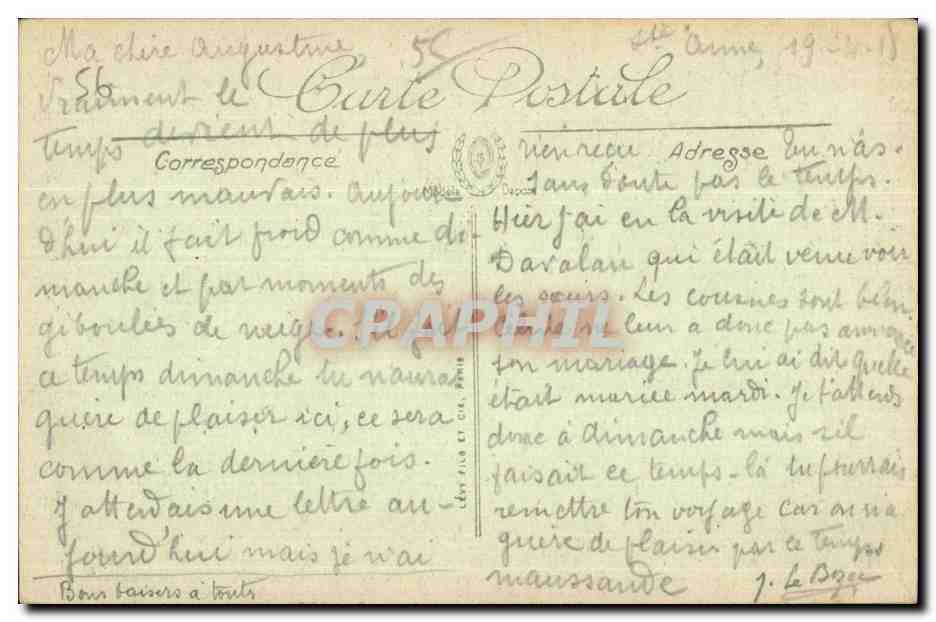 Ma chère Augustine
56
Ste Anne, 19-4-18
56
Carte Postale
Vraiment le
temps devient de plus
Correspondance
en plus mauvais. Aujour-
d'hui il fait froid comme di-
manche et par moments des
giboulées de neige. fait
ce temps dimanche tu n'aura
guère de plaisir ici, ce sera
comme la dernière fois.
J'attendais une lettre au-
jourd'hui mais je n'ai
Bons baisers à touts
Modèle Déposé
LÉVY FILS ET CIE, PARIS
Adresse
rien reçu Tu n'as
sans doute pas le temps.
Hier j'ai eu la visite de M.
Davalan qui était venu voir
les sœurs. Les cousines sont bien
ne leur a donc pas annoncé
son mariage. Je lui ai dit qu'elle
était mariée mardi. Je t'attends
donc à dimanche mais s'il
faisait ce temps-là tu pourrais
remettre ton voyage car on n'a
guère de plaisir par ce temps
maussade J. Le Bozec
CPAPHIL